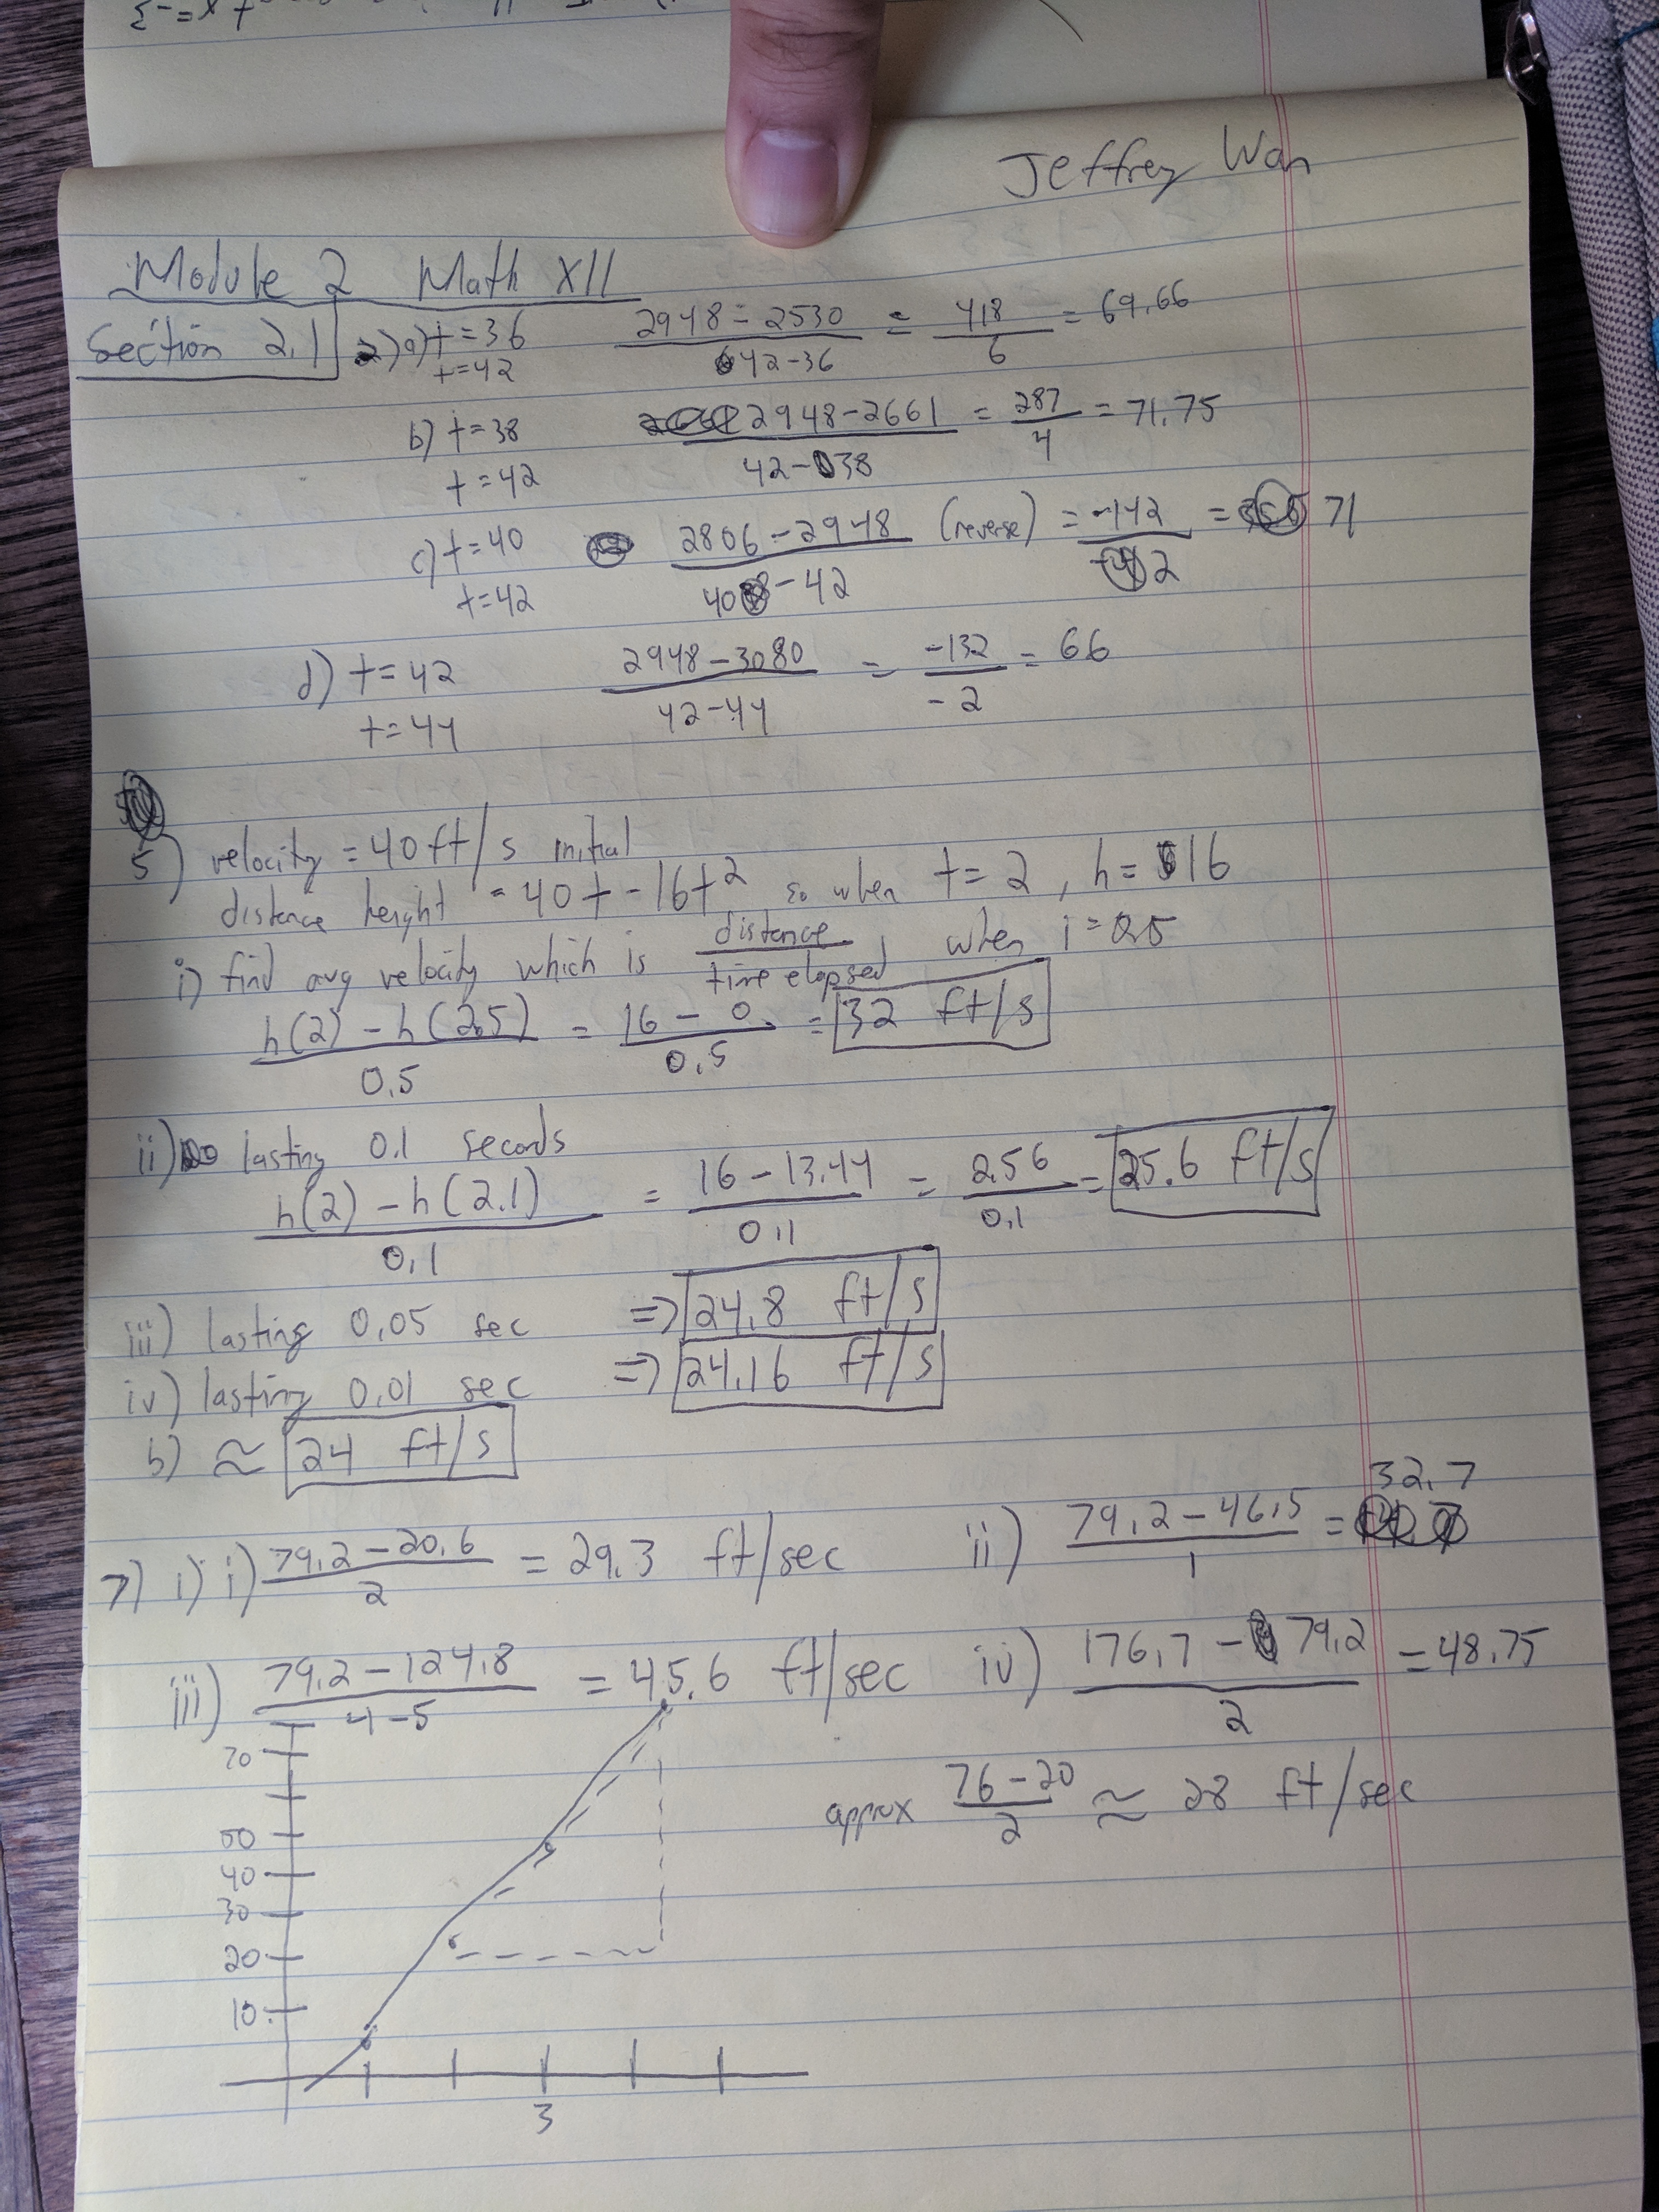 Jeffrey Wan
Module 2 Math XII
Section 2.1 2) a) t=36 2948-2530 / 42-36 = 418/6 = 69.66
t=42
b) t=38 2948-2661 / 42-38 = 287/4 = 71.75
t=42
c) t=40 2806-2948 / 40-42 (reverse) = -142 / -2 = 71
t=42
d) t=42 2948-3080 / 42-44 = -132 / -2 = 66
t=44
5) velocity = 40 ft/s initial
distance height = 40t-16t² so when t=2, h=16
i) find avg velocity which is distance / time elapsed, when i=0.5
h(2)-h(2.5) / 0.5 = 16-0 / 0.5 = 32 ft/s
ii) lasting 0.1 seconds
h(2)-h(2.1) / 0.1 = 16-13.44 / 0.1 = 2.56 / 0.1 = 25.6 ft/s
iii) lasting 0.05 sec => 24.8 ft/s
iv) lasting 0.01 sec => 24.16 ft/s
b) ≈ 24 ft/s
7) i) i) 79.2-20.6 / 2 = 29.3 ft/sec ii) 79.2-46.5 / 1 = 32.7
iii) 79.2-124.8 / 4-5 = 45.6 ft/sec iv) 176.7-79.2 / 2 = 48.75
70
approx 76-20 / 2 ≈ 28 ft/sec
50
40
30
20
10
3